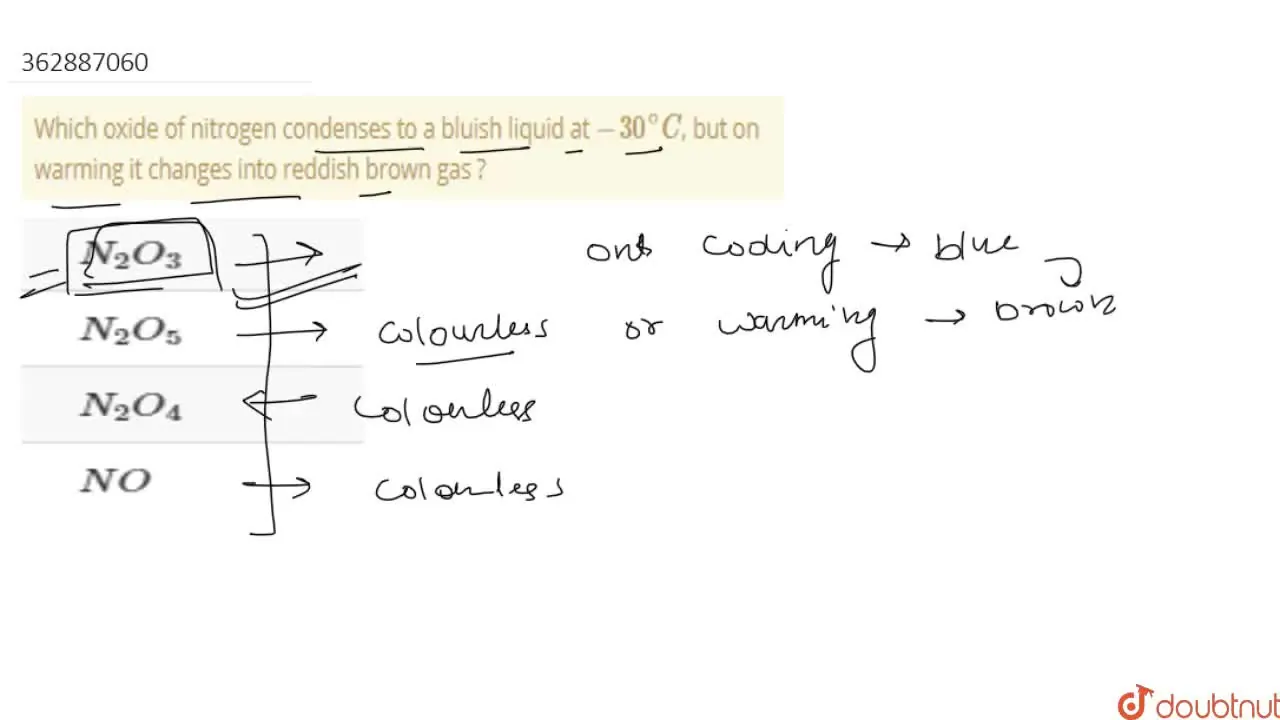 362887060
Which oxide of nitrogen condenses to a bluish liquid at −30°C, but on
warming it changes into reddish brown gas ?
N₂O₃ → coding → blue
N₂O₅ → colourless or warming → brown
N₂O₄ ← colourless
NO → colourless
doubtnut